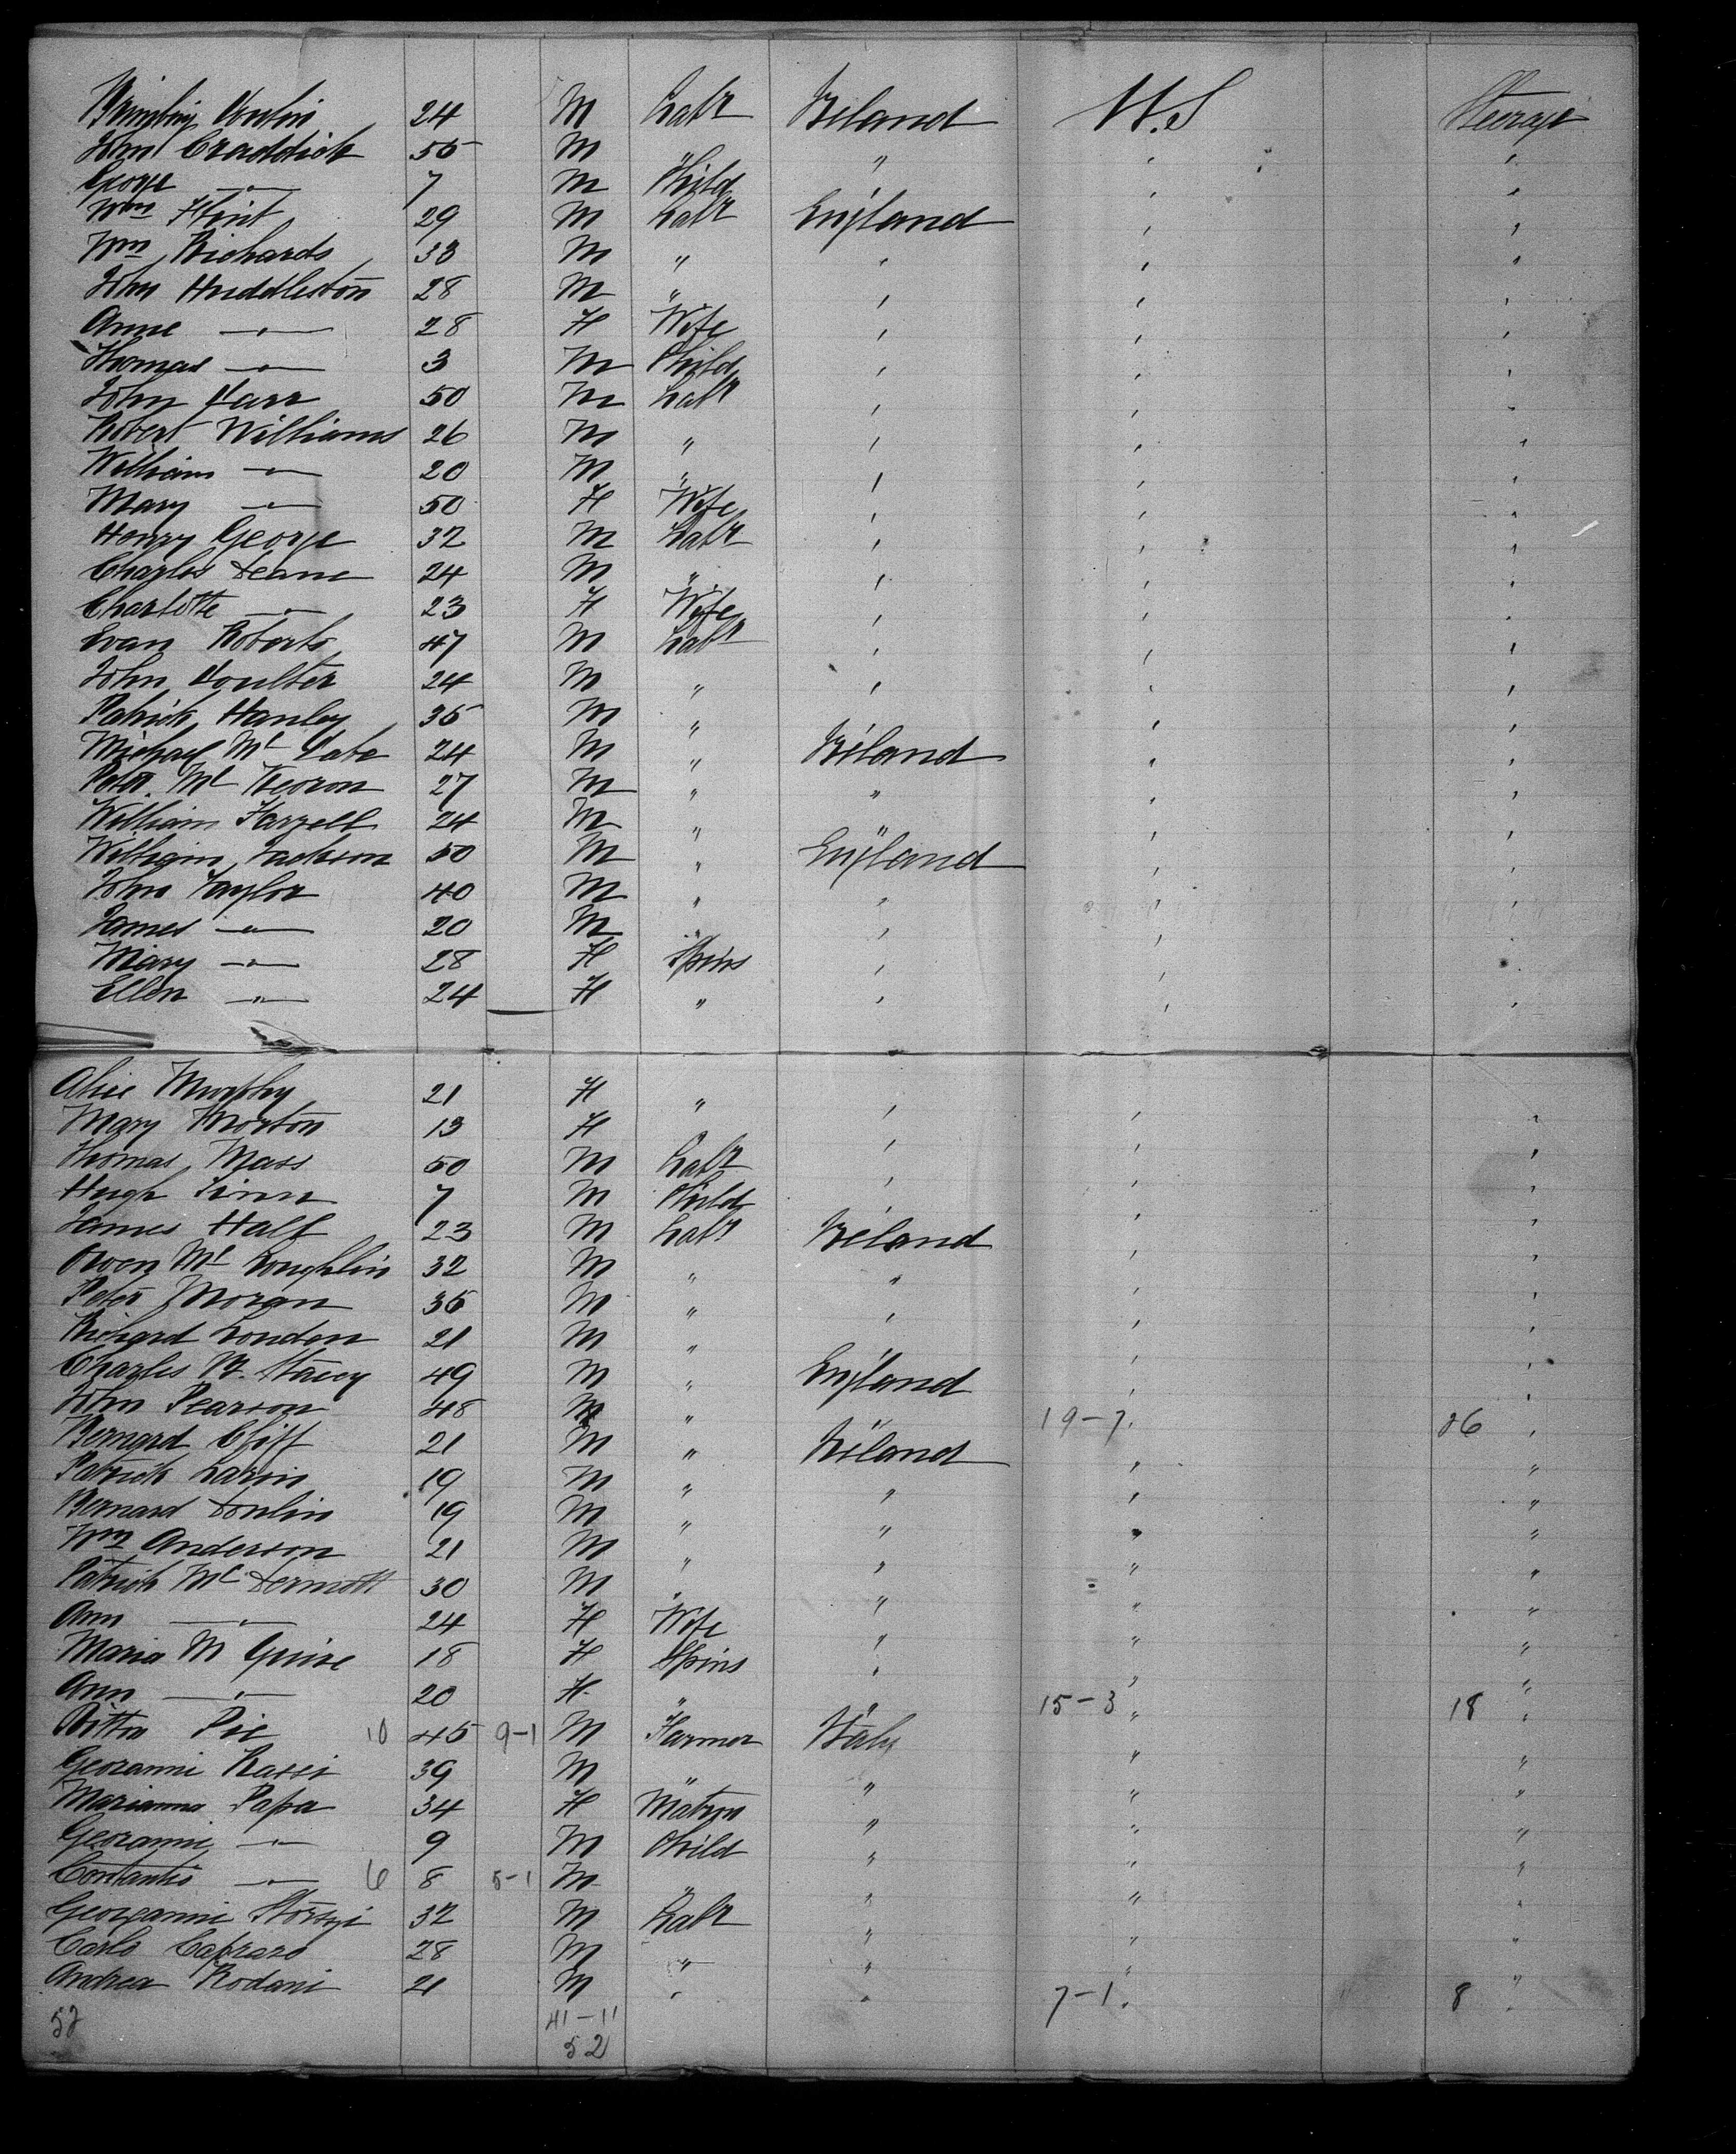 24 M Labr Ireland U.S Steerage
John Craddick 55 M " " " "
George —"— 7 M Child " " "
Wm Flint 29 M Labr England " "
Wm Richards 33 M " " " "
John Huddleston 28 M " " " "
Anne —"— 28 F Wife " " "
Thomas —"— 3 M Child " " "
John 50 M Labr " " "
Robert Williams 26 M " " " "
William —"— 20 M " " " "
Mary —"— 50 F Wife " " "
Henry George 32 M Labr " " "
Charles Deane 24 M " " " "
Charlotte —"— 23 F Wife " " "
Evan Roberts 47 M Labr " " "
John Coulter 24 M " " " "
Patrick Hanley 35 M " " " "
Michael Mc Cabe 24 M " Ireland " "
Peter Mc Keoron 27 M " " " "
William Farrell 24 M " " " "
William Jackson 50 M " England " "
John Taylor 40 M " " " "
James —"— 20 M " " " "
Mary —"— 28 F Spins " " "
Ellen —"— 24 F " " " "
Alice Murphy 21 F " " " "
Mary Morton 13 F " " "
Thomas Mass 50 M Labr " " "
Hugh Finn 7 M Child " " "
James Hall 23 M Labr Ireland " "
Owen Mc Loughlin 32 M " " " "
Peter Moran 35 M " " " "
Richard London 21 M " " "
Charles W. Stacey 49 M " England " "
John Pearson 48 M " " 19-7. 26 "
Bernard Cliff 21 M " Ireland " "
Patrick Larin 19 M " " " "
Bernard Donlin 19 M " " " "
Wm Anderson 21 M " " " "
Patrick Mc Dermott 30 M " " " "
Ann —"— 24 F Wife " " "
Maria M Guire 18 F Spins " " "
Ann —"— 20 F " " 15-3 " 18 "
Pie 10 45 9-1 M Farmer Italy " "
Georanni Rassi 39 M " " " "
Marianna Papa 34 F Matron " " "
Georanni —"— 9 M Child " " "
Contantio —"— 6 8 5-1 M " " " "
Georganni 32 M Labr " " "
Carlo Capraro 28 M " " " "
Andrea Rodani 21 M " " 7-1. 8 "
52 41-11
52